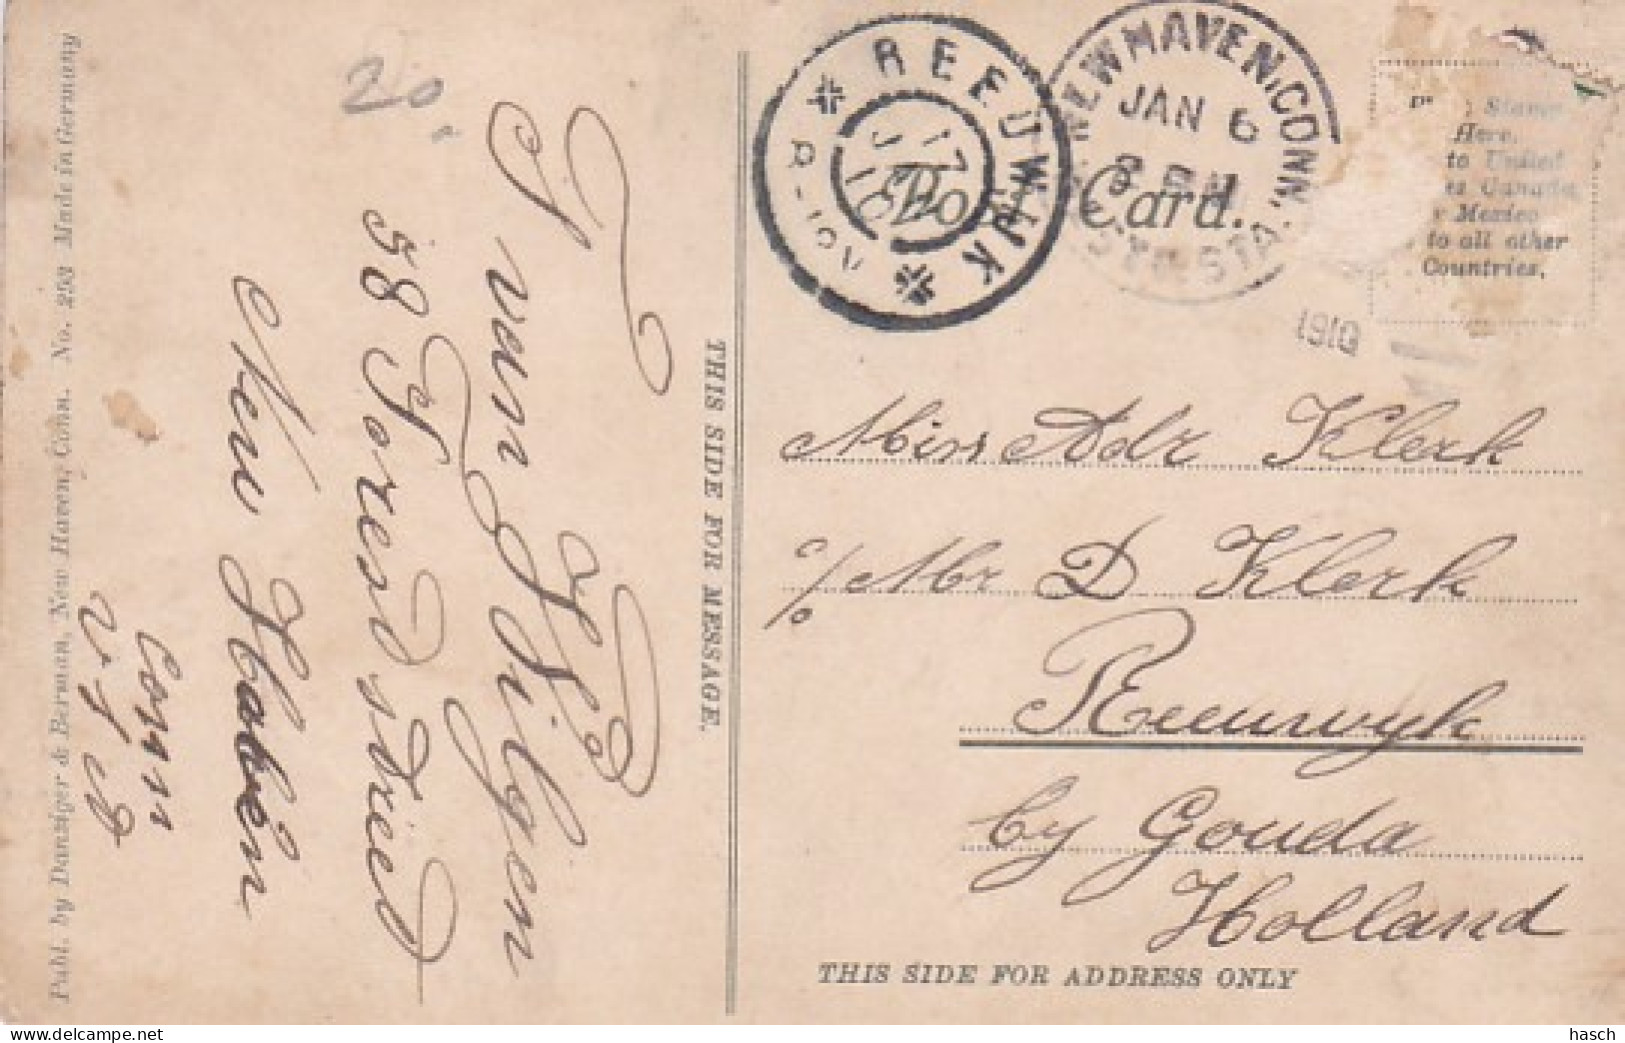 Publ. by Danziger & Berman, New Haven, Conn. No. 252 Made in Germany
20.
van Hilgen
58 Forest street
New Haven
Conn
U S A
THIS SIDE FOR MESSAGE.
REEUWIJK
NEW HAVEN, CONN.
JAN 6
STA.
1910
Post Card.
Stamp
Here.
to United
Canada
Mexico
to all other
Countries.
Miss Adr Klerk
c/o Mr D Klerk
Reeuwyk
by Gouda
Holland
THIS SIDE FOR ADDRESS ONLY
hasch